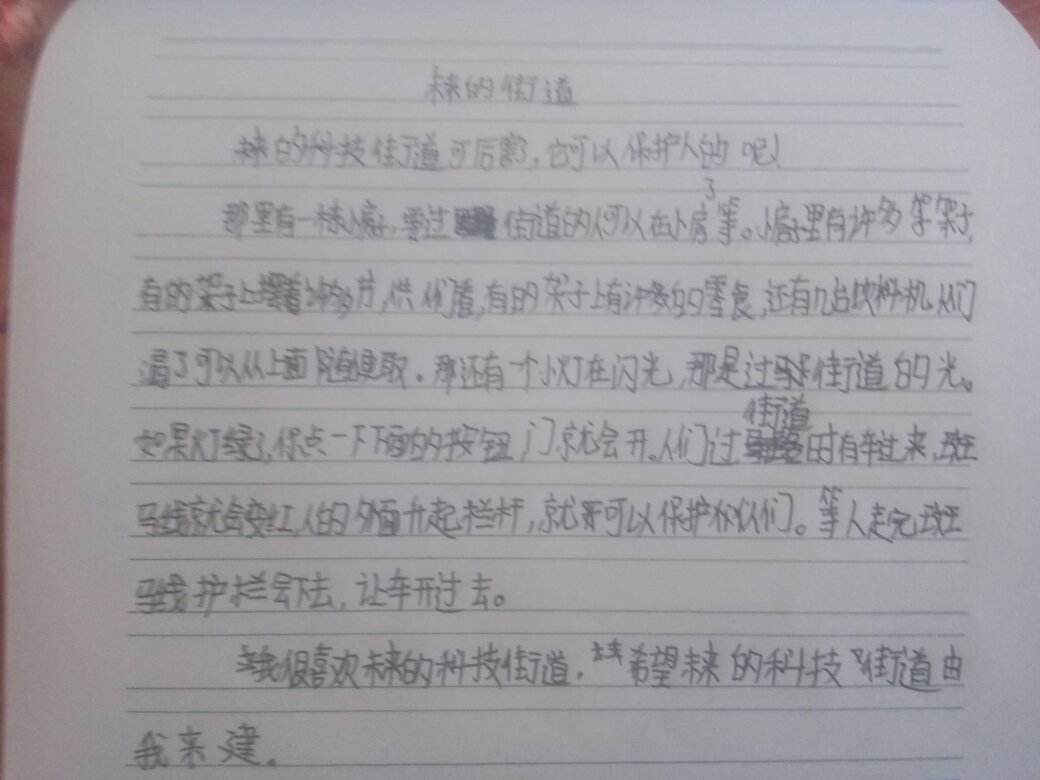 未来的街道
未来的科技街道可厉害,也可以保护人的呢!
那里有一栋小房子,要过街道的人可以在小房子等。小房子里有许多架子,
有的架子上摆着许多书,供人们看,有的架子上有许多的零食,还有几台饮料机人们
渴了可以从上面随便取。那还有一个小灯在闪光,那是过街道的光。
如果灯绿了,你点一下下面的按钮门就会开。人们过街道时有车过来,斑
马线就会变红人的外面升起栏杆,就可以保护人们。等人走完斑
马线护栏会下去,让车开过去。
我很喜欢未来的科技街道,希望未来的科技街道由
我来建。